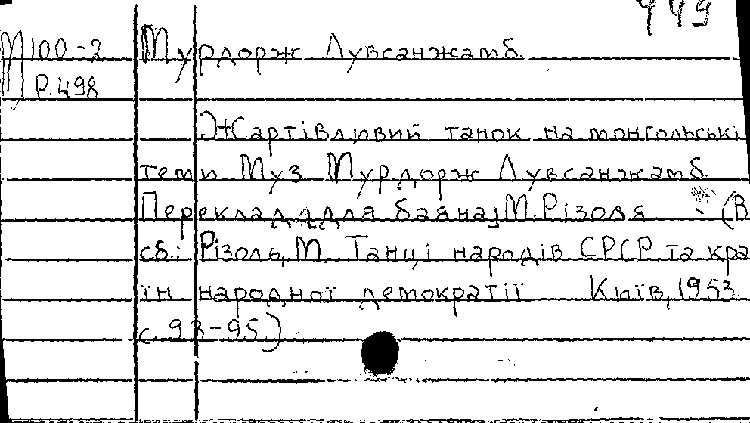 449
М100-2
Р.498
Мурдорж Лувсанжамб.
Жартівливий танок на монгольські
теми Муз Мурдорж Лувсанжамб.
Переклад для баяна М.Різоля (В
сб.: Різоль, М. Танці народів СРСР та кра
їн народної демократії Київ, 1953
с. 93-95)